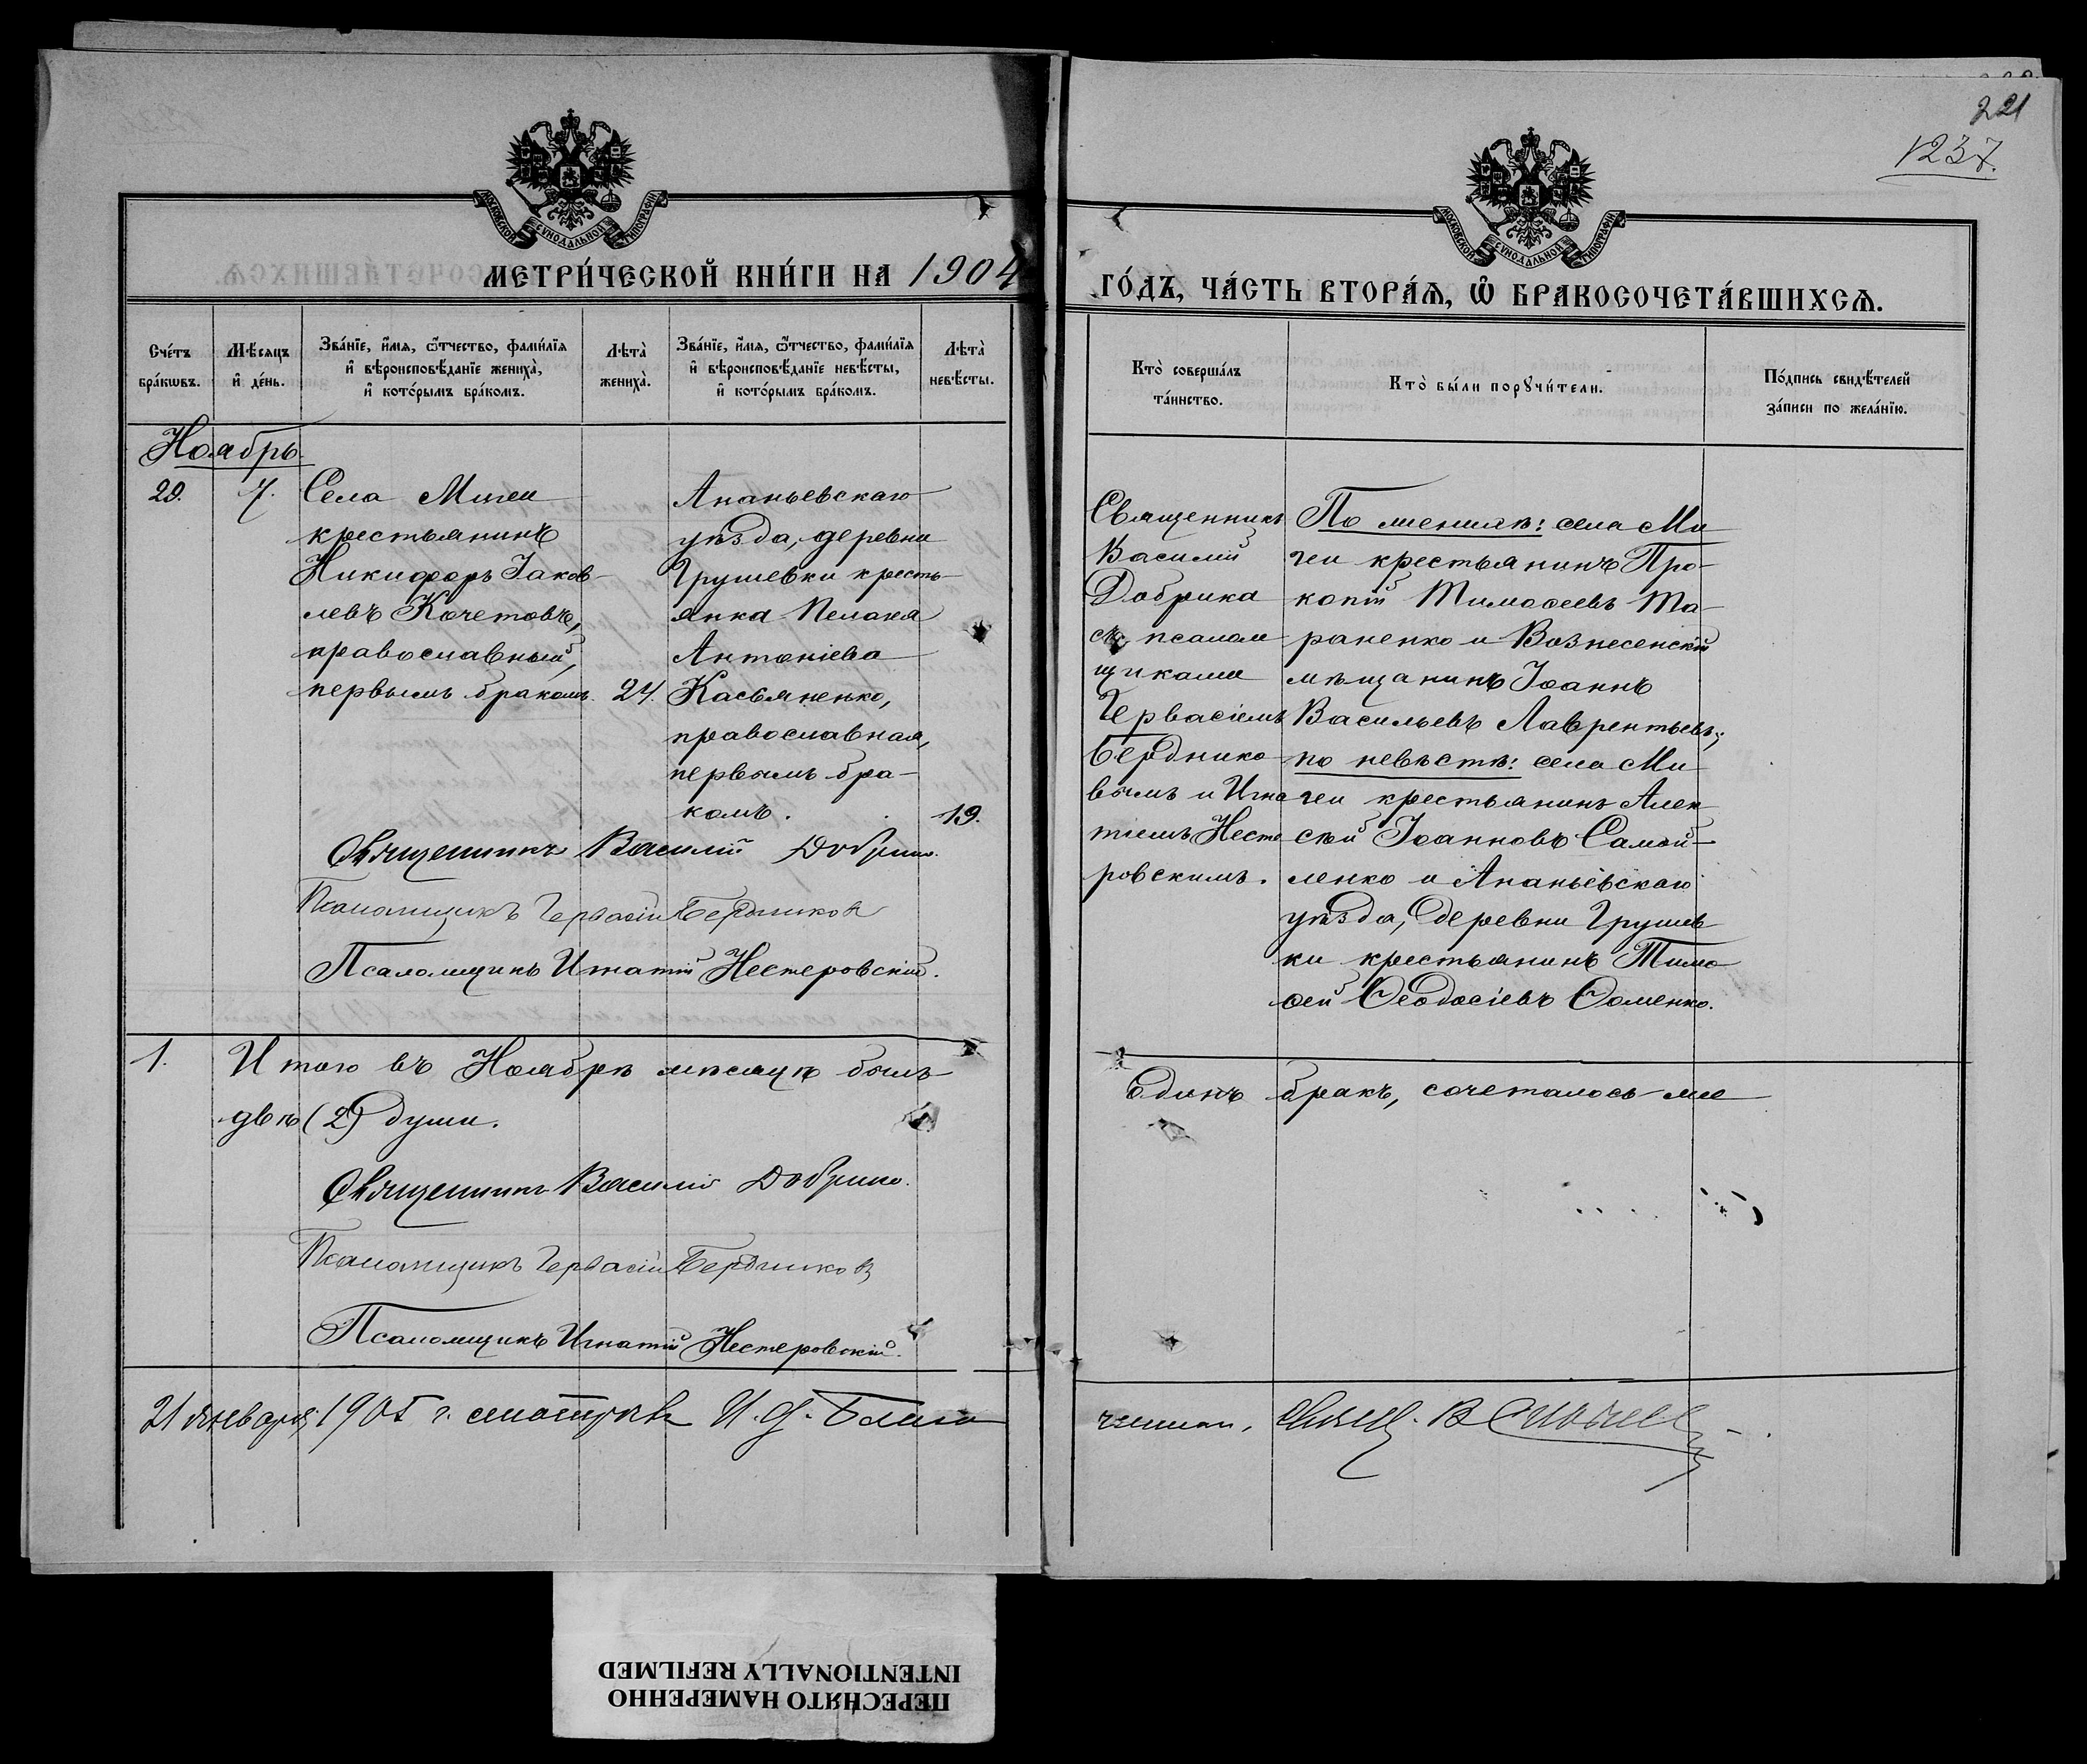 221
1237.
МОСКОВСКОЙ СѴНОДАЛЬНОЙ ТИПОГРАФІИ
МОСКОВСКОЙ СѴНОДАЛЬНОЙ ТИПОГРАФІИ
МЕТРИ́ЧЕСКОЙ КНИ́ГИ НА 1904
ГО́ДЪ, ЧА́СТЬ ВТОРА́Ѧ, Ѡ҆ БРАКОСОЧЕТА́ВШИХСѦ.
Сче́тъ
бра́кѡвъ.
Мѣ́сяцъ
и҆ де́нь.
Зва́нїе, и҆́мѧ, ѻ҆́тчество, фамі́лїя
и҆ вѣроисповѣ́данїе жениха̀,
и҆ кото́рымъ бра́комъ.
Лѣта̀
жениха̀.
Зва́нїе, и҆́мѧ, ѻ҆́тчество, фамі́лїя
и҆ вѣроисповѣ́данїе невѣ́сты,
и҆ кото́рымъ бра́комъ.
Лѣта̀
невѣ́сты.
Кто̀ соверша́лъ
та́инство.
Кто̀ бы́ли порꙋчи́тели.
По́дпись свидѣ́телей
за́писи по жела́нїю.
Ноябрь.
20.
7.
Села Мигеи
крестьянинъ
Никифоръ Іаков-
левъ Кочетовъ,
православный,
первымъ бракомъ.
24.
Ананьевскаго
уѣзда, деревни
Грушевки кресть-
янка Пелагея
Антоніева
Касьяненко,
православная,
первымъ бра-
комъ.
19.
Священникъ
Василій
Добрика
съ псалом
щиками
Гервасіемъ
Берднико
вымъ и Игна
тіемъ Несте
ровскимъ.
По женихѣ: села Ми
геи крестьянинъ Про-
копій Тимоѳеевъ Та-
раненко и Вознесенскій
мѣщанинъ Іоаннъ
Васильевъ Лаврентьевъ;
по невѣстѣ: села Ми
геи крестьянинъ Алек
сѣй Іоанновъ Самой-
ленко и Ананьевскаго
уѣзда, деревни Грушев
ки крестьянинъ Тимо
ѳей Ѳеодосіевъ Ѳоменко.
Священникъ Василій Добрика.
Псаломщикъ Гервасій Бердников
Псаломщикъ Игнатій Нестеровскій.
1.
Итого въ Ноябрѣ мѣсяцѣ былъ
Одинъ бракъ, сочеталось-же
двѣ (2) души.
Священникъ Василій Добрика.
Псаломщикъ Гервасій Бердников
Псаломщикъ Игнатій Нестеровскій.
21 января 1905 г. смотрѣлъ И. д. Благо
чиннаго, Свящ. В
ПЕРЕСНЯТО НАМЕРЕННО
INTENTIONALLY REFILMED